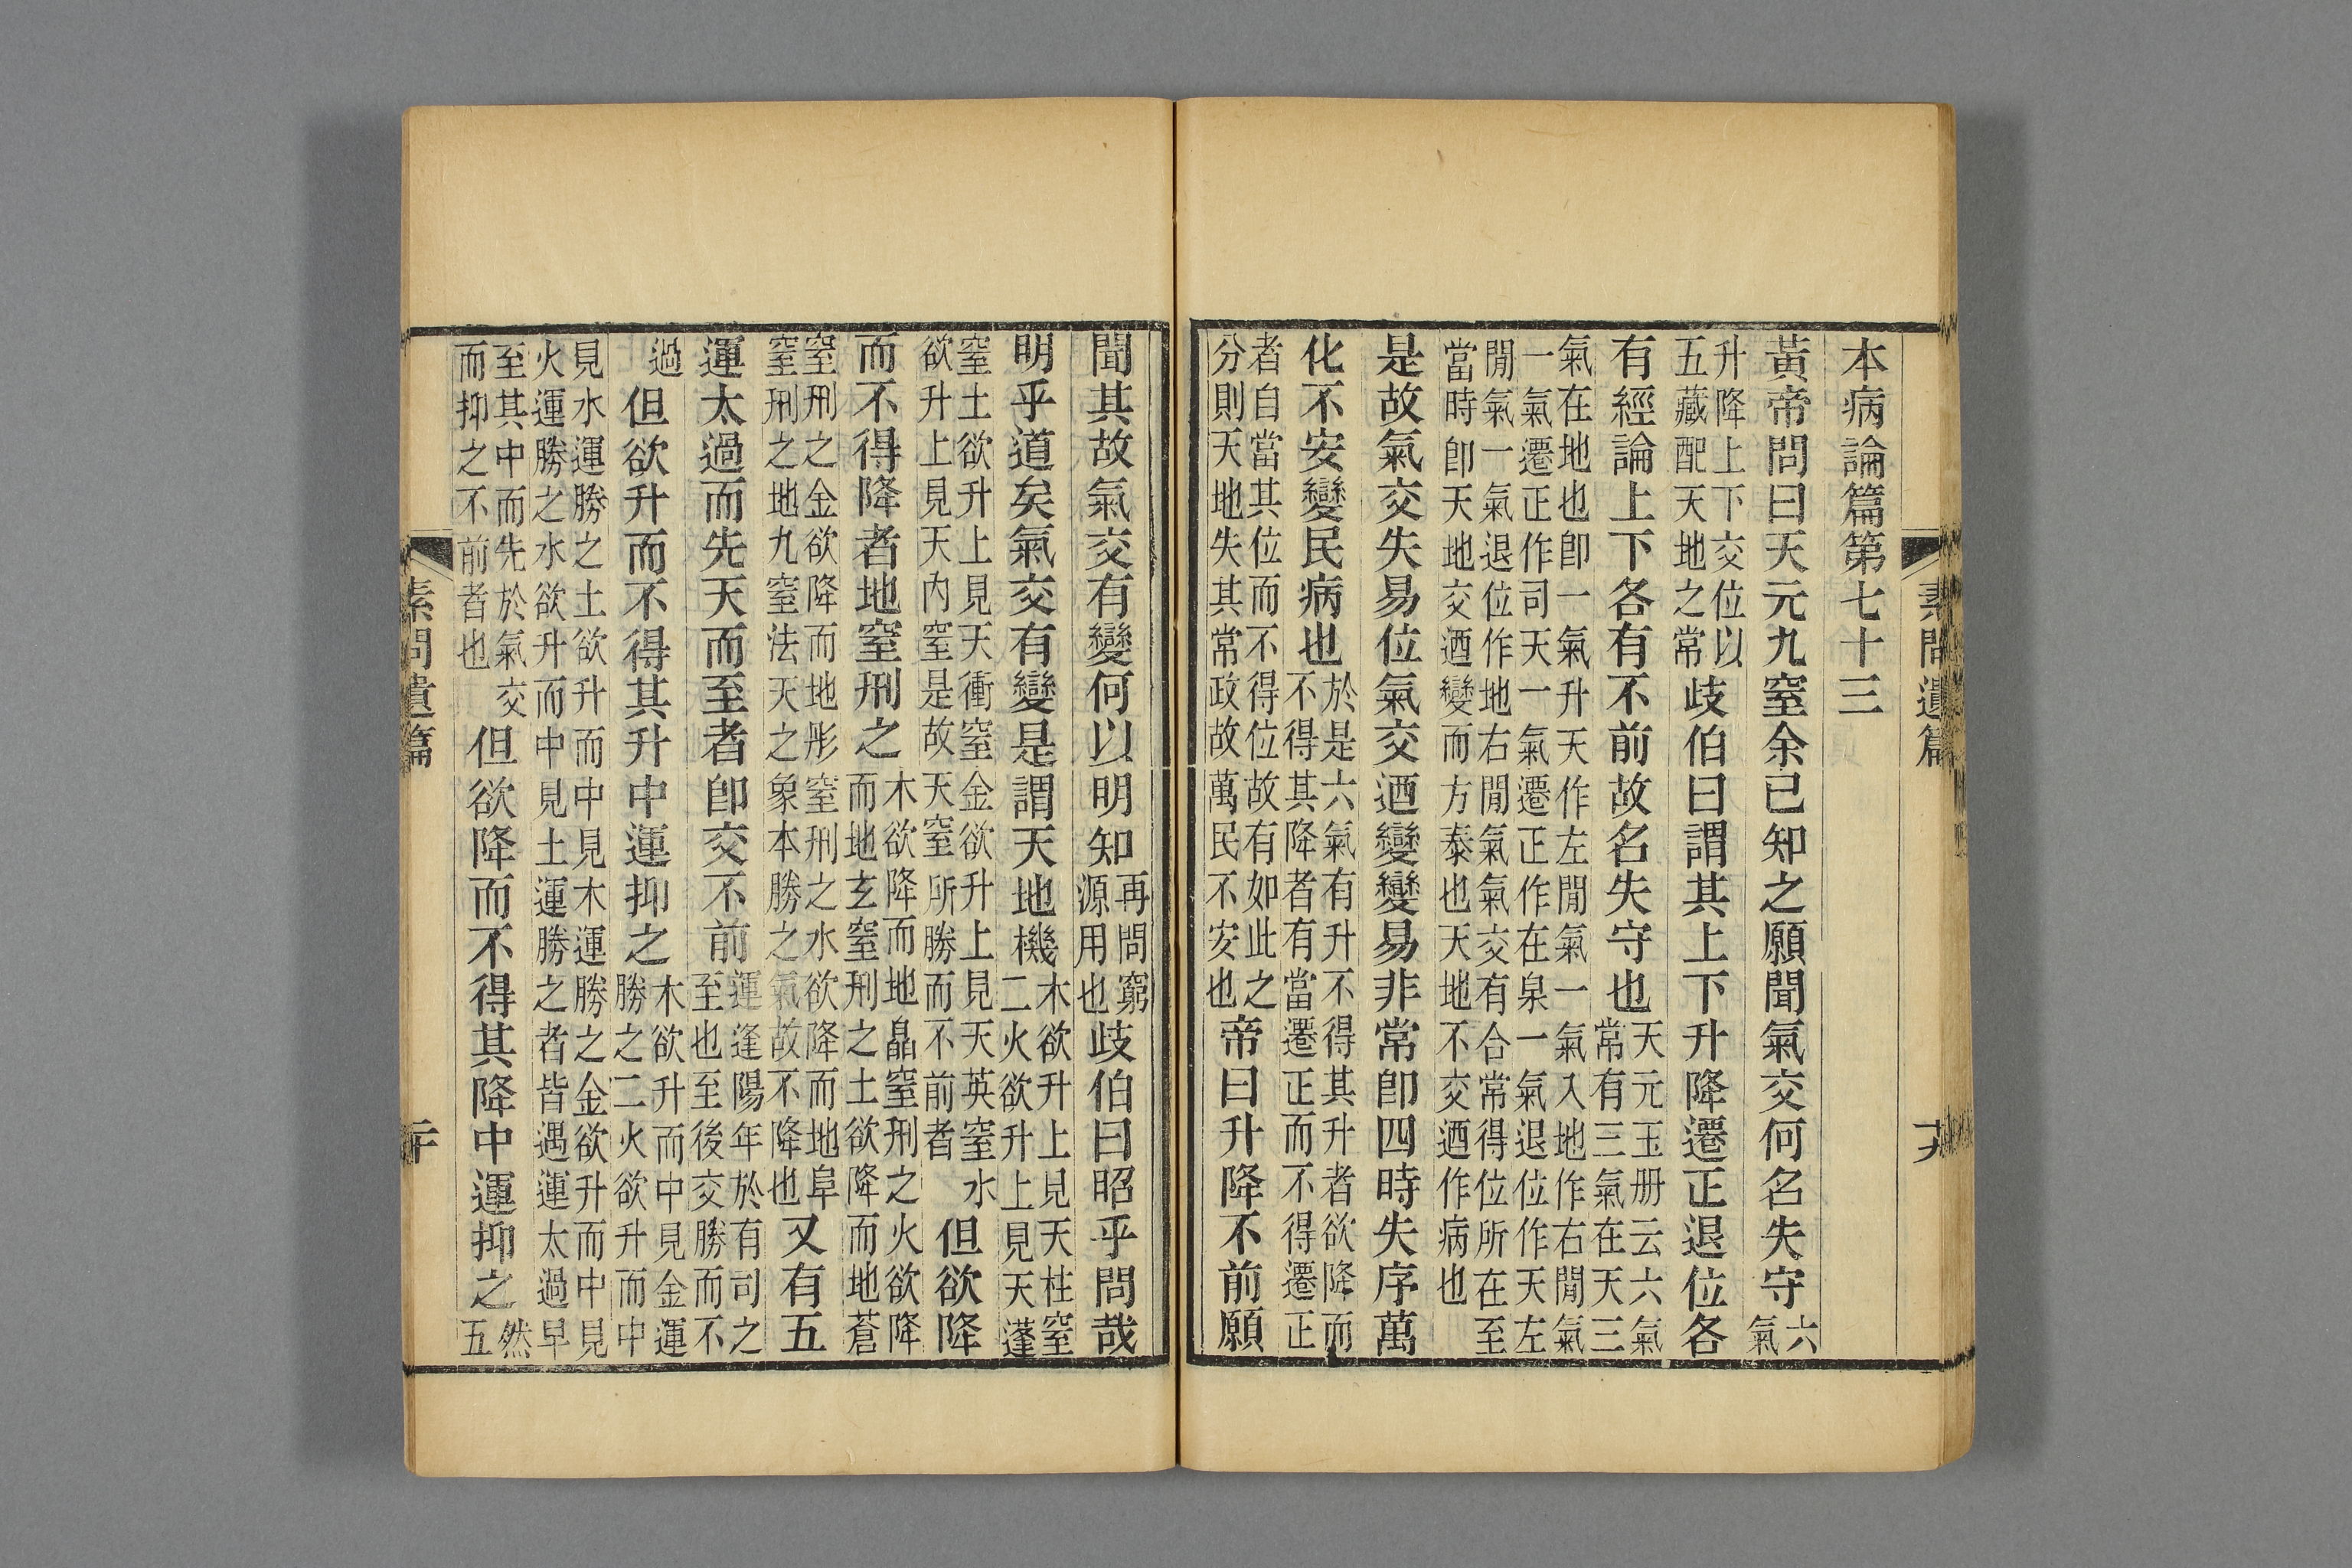 素問遺篇 十九
本病論篇第七十三
黃帝問曰天元九窒余已知之願聞氣交何名失守六氣
升降上下交位以五藏配天地之常歧伯曰謂其上下升降遷正退位各
有經論上下各有不前故名失守也天元玉册云六氣常有三氣在天三
氣在地也卽一氣升天作左閒氣一氣入地作右閒氣一氣遷正作司天一氣遷正作在泉一氣退位作天左
閒氣一氣退位作地右閒氣氣交有合常得位所在至當時卽天地交迺變而方泰也天地不交迺作病也
是故氣交失易位氣交迺變變易非常卽四時失序萬
化不安變民病也於是六氣有升不得其升者欲降而不得其降者有當遷正而不得遷正
者自當其位而不得位故有如此之分則天地失其常政故萬民不安也帝曰升降不前願
聞其故氣交有變何以明知再問窮源用也歧伯曰昭乎問哉
明乎道矣氣交有變是謂天地機木欲升上見天柱窒二火欲升上見天蓬
窒土欲升上見天衝窒金欲升上見天英窒水欲升上見天內窒是故天窒所勝而不前者但欲降
而不得降者地窒刑之木欲降而地皛窒刑之火欲降而地玄窒刑之土欲降而地蒼
窒刑之金欲降而地彤窒刑之水欲降而地阜窒刑之地九窒法天之象本勝之氣故不降也又有五
運太過而先天而至者卽交不前運逢陽年於有司之至也至後交勝而不
過但欲升而不得其升中運抑之木欲升而中見金運勝之二火欲升而中
見水運勝之土欲升而中見木運勝之金欲升而中見火運勝之水欲升而中見土運勝之者皆遇運太過早
至其中而先於氣交而抑之不前者也但欲降而不得其降中運抑之然五
素問遺篇 二十